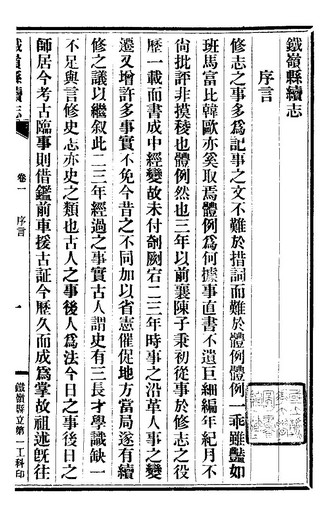 鐵嶺縣續志
序言
修志之事多為記事之文不難於措詞而難於體例體例一乖雖豔如
班馬富比韓歐亦奚取焉體例為何據事直書不遺巨細編年紀月不
尚批評非摸稜也體例然也三年以前襄陳子秉初從事於修志之役
歷一載而書成中經變故未付剞劂宕一二三年時事之沿革人事之變
遷又增許多事實不免今昔之不同加以省憲催促地方當局遂有續
修之議以繼叙此二三年經過之事實古人謂史有三長才學識缺一
不足與言修史志亦史之類也古人之事後人為法今日之事後日之
師居今考古臨事則借鑑前車援古証今歷久而成為掌故祖述既往
鐵嶺縣續志
卷一
序言
一
鐵嶺縣立第一工科印